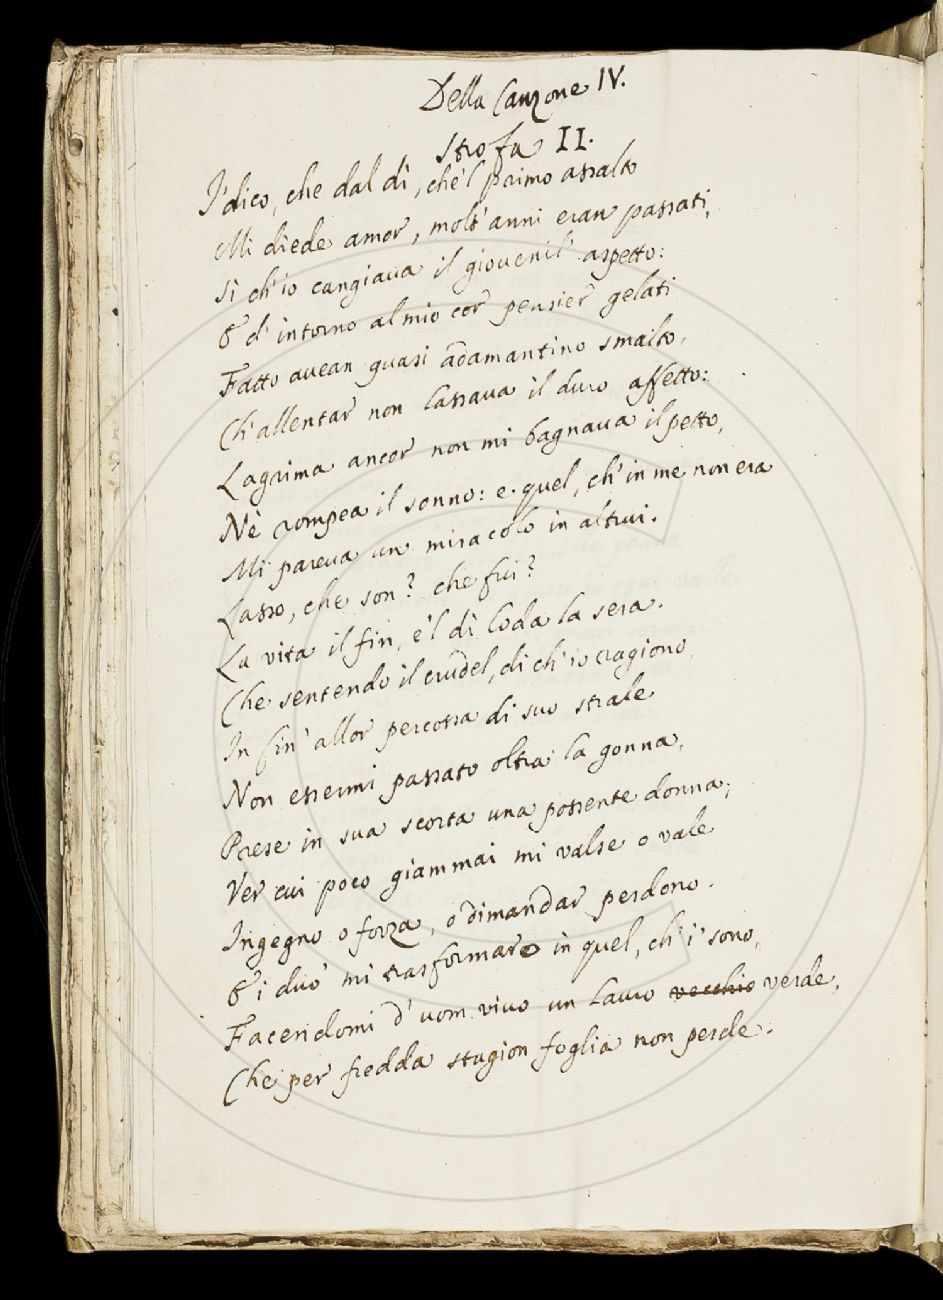 Della Canzone IV.
Strofa II.
I' dico, che dal dì, che'l primo assalto
Mi diede amor, molt'anni eran passati,
Sì ch'io cangiava il giovenil aspetto:
E d'intorno al mio cor pensier gelati
Fatto avean quasi adamantino smalto,
Ch'allentar non lassava il duro affetto:
Lagrima ancor non mi bagnava il petto,
Nè rompea il sonno: e quel, ch'in me non era
Mi pareva un miracolo in altrui.
Lasso, che son? che fui?
La vita il fin, e'l dì loda la sera.
Che sentendo il crudel, di ch'io ragiono,
In fin' allor percossa di suo strale
Non essermi passato oltra la gonna,
Prese in sua scorta una possente donna;
Ver cui poco giammai mi valse o vale
Ingegno o forza, o dimandar perdono.
E i duo mi trasformaro in quel, ch'i' sono,
Facendomi d'uom vivo un lauro vecchio verde,
Che per fredda stagion foglia non perde.